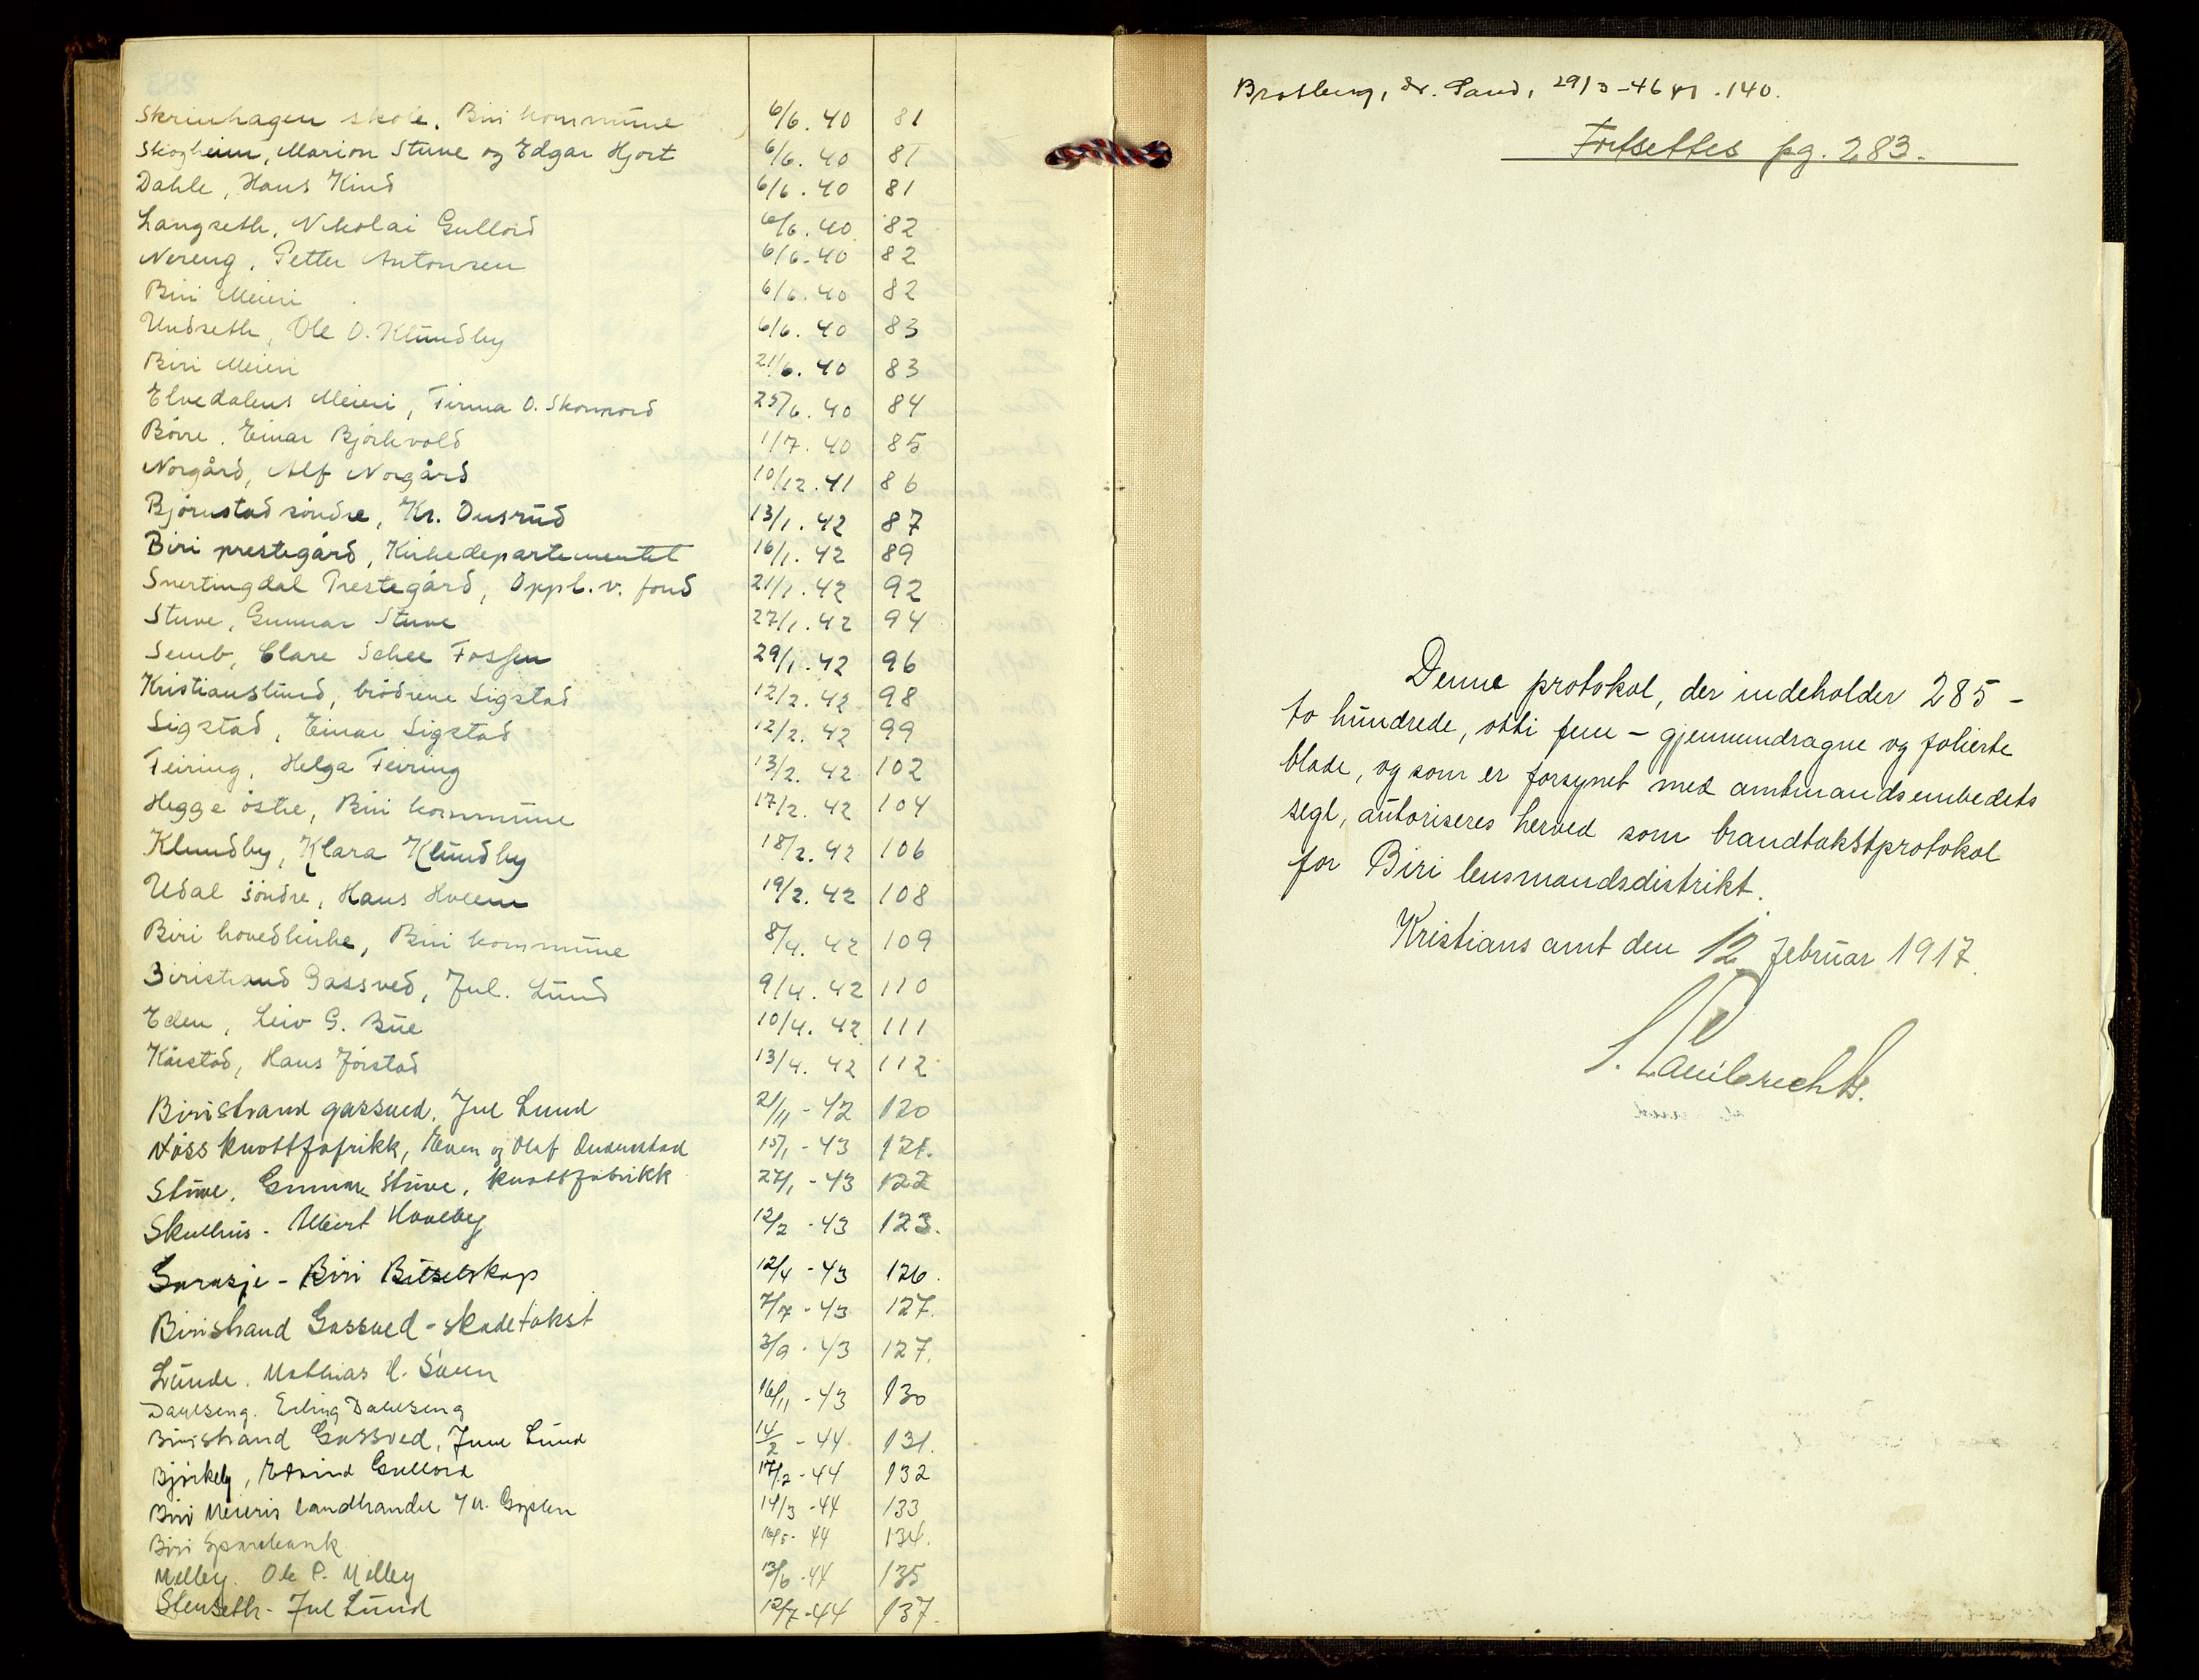 Skrinhagen skole, Biri kommune 6/6. 40 81
Skogheim, Marion Stuve og Edgar Hjort 6/6. 40 81
Dahle, Hans Kind 6/6. 40 81
Langseth, Nikolai Gullord 6/6. 40 82
Nereng, Petter Antonsen 6/6. 40 82
Biri Meieri 6/6. 40 82
Undseth, Ole O. Klundby 6/6. 40 83
Biri Meieri 21/6. 40 83
Elvedalens Meieri, Firma O. Skonnord 25/6. 40 84
Bövre, Einar Björkvold 1/7. 40 85
Norgård, Alf Norgård 10/12. 41 86
Björnstad söndre, Kr. Onsrud 13/1. 42 87
Biri prestegård, Kirkedepartementet 16/1. 42 89
Snertingdal Prestegård, Oppl.v. fond 21/1. 42 92
Stuve, Gunnar Stuve 27/1. 42 94
Semb, Clare Schee Fossen 29/1. 42 96
Kristianslund, brödrene Sigstad 12/2. 42 98
Sigstad, Einar Sigstad 12/2. 42 99
Feiring, Helga Feiring 13/2. 42 102
Hegge östre, Biri kommune 17/2. 42 104
Klundby, Klara Klundby 18/2. 42 106
Udal söndre, Hans Hveem 19/2. 42 108
Biri hovedkirke, Biri kommune 8/4. 42 109
Biristrand Gassved, Jul. Lund 9/4. 42 110
Eden, Leiv G. Bue 10/4. 42 111
Kårstad, Hans Jörstad 13/4. 42 112
Biristrand gassved, Jul Lund 21/11 - 42 120
Næss knottfafrikk, Even og Olaf 15/1 - 43 121.
Stuve, Gunnar Stuve, knottfabrikk 27/1 - 43 122
Skulhus - Albert Hovelby 12/2 - 43 123.
Garasje - Biri Bilselskap 12/4 - 43 126.
Biristrand Gassved - skadetakst 7/7 - 43 127.
Lunde. Mathias H. Sveen 3/9 - 43 127.
Dahlseng. Erling Dahlseng 16/11 - 43 130
Biristrand Gassved, Jul Lund 14/2 - 44 131.
Björkely, Eivind Gullord 17/2 - 44 132
Biri Meieris landhandel 14/3 - 44 133
Biri Sparebank 16/5 - 44 134.
Melby. Ole P. Melby 13/6 - 44 135
Stenseth - Jul Lund 12/7 - 44 137.
Brotberg, Sr. Sand, 29/3 - 46 140.
Fortsettes pg. 283.
Denne protokol, der indeholder 285 -
to hundrede, otti fem - gjennemdragne og folierte
blade, og som er forsynet med amtmandsembedets
segl, autoriseres herved som brandtakstprotokol
for Biri lensmandsdistrikt.
Kristians amt den 12 februar 1917.
Lambrechts.